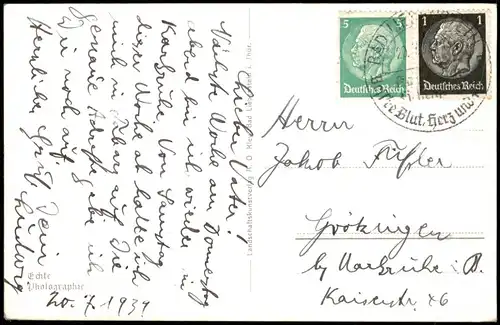 Lieber Vater!
Nächste Woche am Donnerstag
abend bin ich wieder in
Karlsruhe. Von Samstag
dieser Woche ab halte ich
mich in auf. Die
genaue Adresse gebe ich
Dir noch auf.
Herzliche Grüße Dein
Ludwig
Echte
Photographie
20.7.1937
Landschaftskunstverlag
5
Deutsches Reich
1
Deutsches Reich
Blut, Herz und
Herrn
Jakob Füßler
Grötzingen
by Karlsruhe i. B.
Kaiserstr. 46